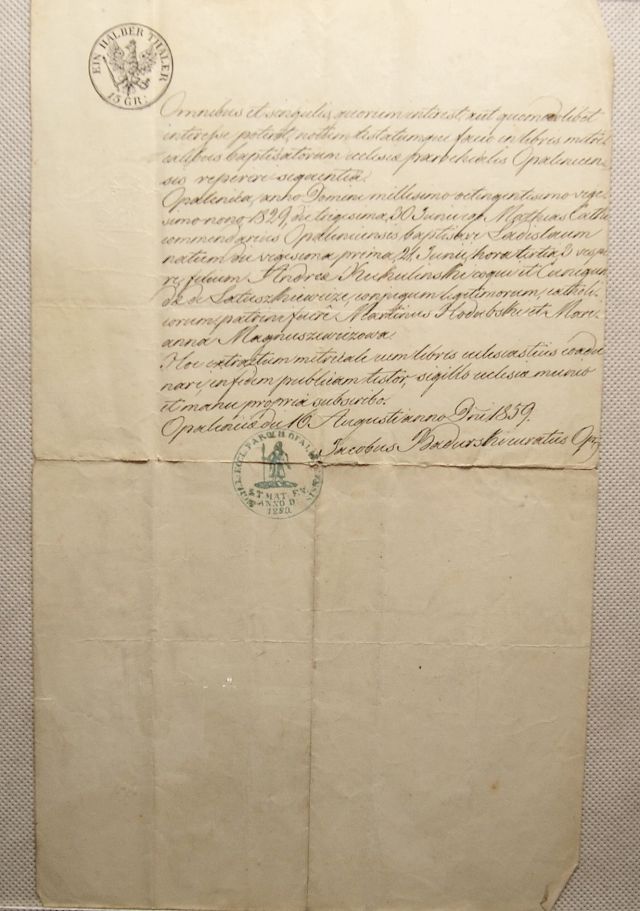 EIN HALBER THALER
15 GR:
Omnibus et singulis, quorum interest, aut quomodolibet
interesse poterit, notum testatumque facio in libris metri-
calibus baptisatorum ecclesiæ parochialis Opalenicen-
sis reperiri sequentia.
Opalenica, anno Domini millesimo octingentesimo vige-
simo nono, 1829, die trigesima, 30 Junii ego Mathias
commendarius Opalenicensis baptisavi Ladislaum
natum die vigesima prima, 21 Junii, hora tertia, 3 vespe-
re, filium Andreæ Kukulinski coqui et Cunegun-
dæ de conjugum legitimorum, catholi-
corum; patrini fuere Martinus et Mari-
anna Magnuszewiczowa.
Hoc extractum metricale cum libris ecclesiasticis coadu-
nari, in fidem publicam testor, sigillo ecclesiæ munio
et manu propria subscribo.
Opalenicæ die 16 Augusti anno Dni 1859.
Jacobus Badurski curatus Op.
ST MAT. EV.
ANNO D.